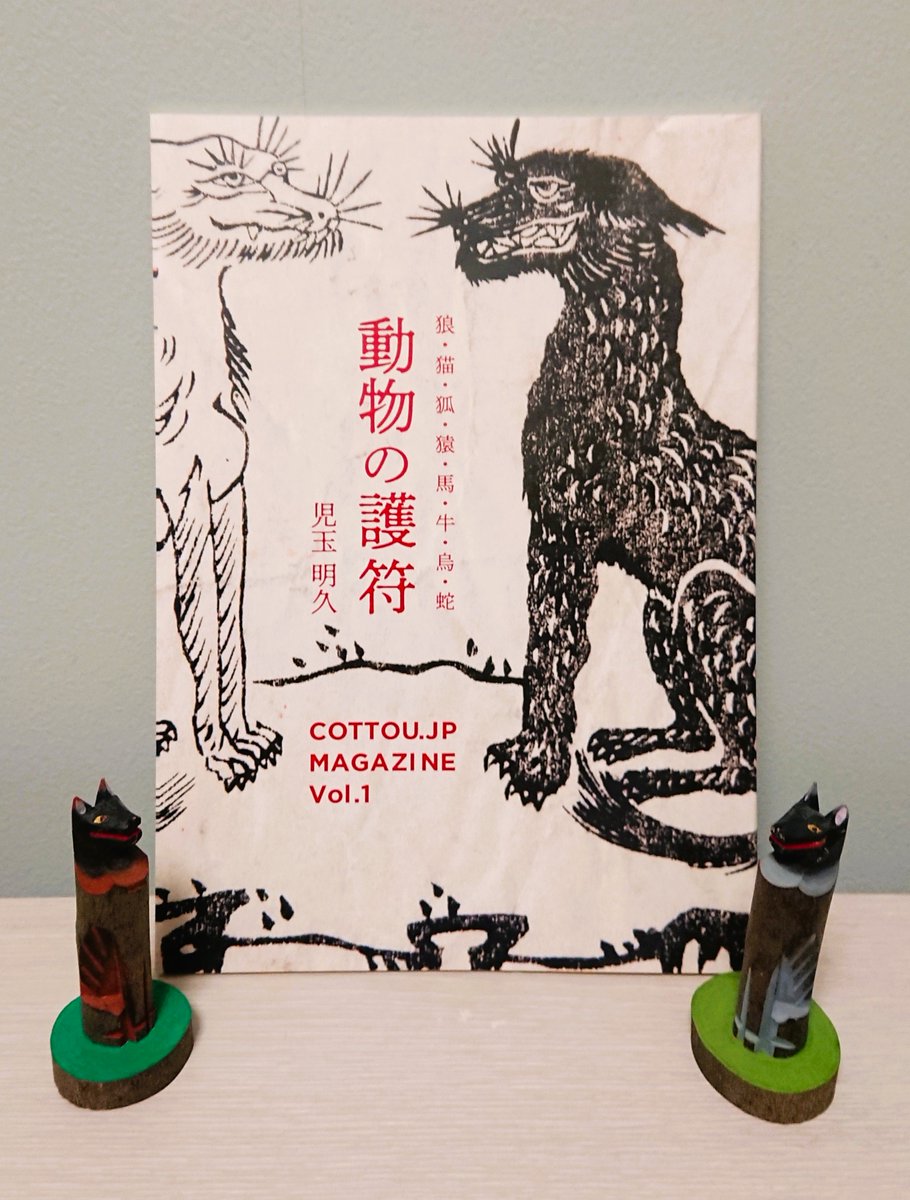 狼・猫・狐・猿・馬・牛・烏・蛇
動物の護符
児玉 明久
COTTOU.JP
MAGAZINE
Vol.1